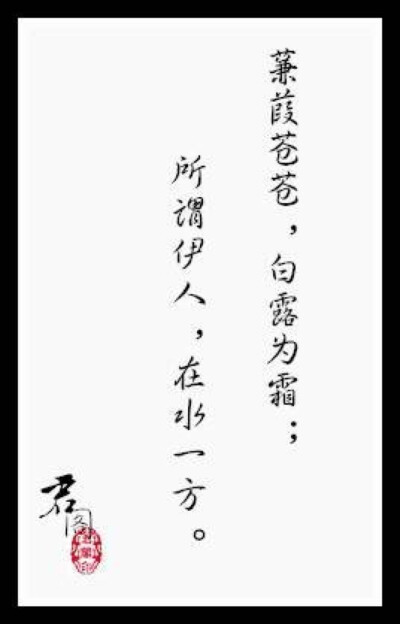 蒹葭苍苍，白露为霜；
所谓伊人，在水一方。
君
图